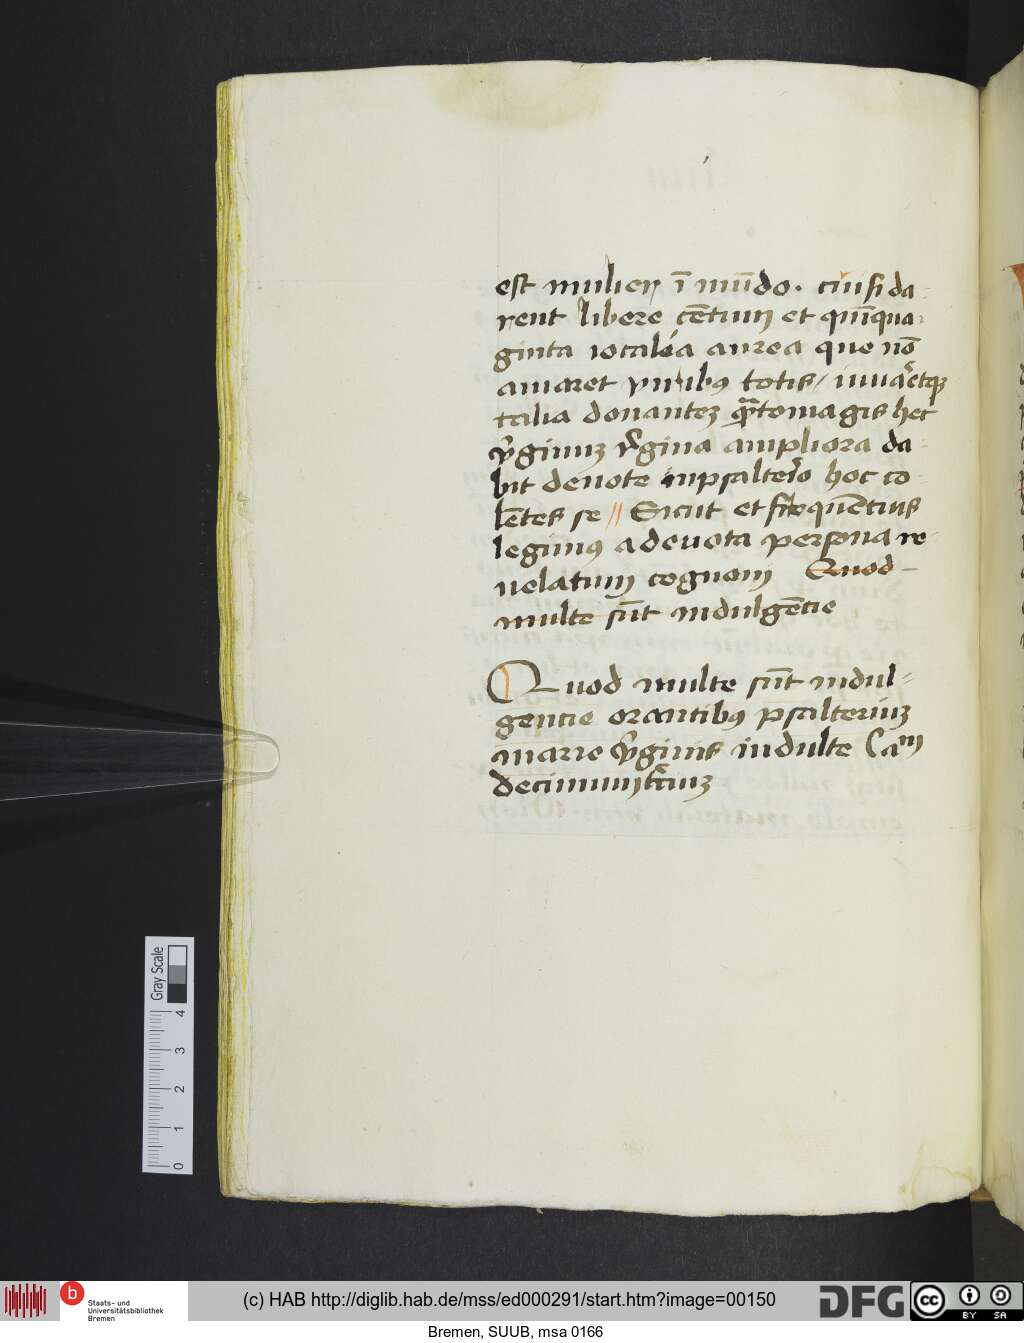 est mulier ī mūdo. cui si da
rent libere cētum et quīqua
ginta iocalia aurea que nō
amaret viribꝰ totis / iuua͛etqꝫ
talia donanteꝫ qᷓtomagis hec
v͛ginuꝫ r͛gina ampliora da
bit deuote inpsalterio hoc co
lētes se // Sicut et frequētius
legimꝰ a deuota persona re
uelatum cognoui Quod
multe sūt indulgētie
Quod multe sūt indul
gentie orantibꝰ psalteriuꝫ
marie v͛ginis indulte Cam
decimum
Gray Scale
0 1 2 3 4
b Staats- und
Universitätsbibliothek
Bremen
(c) HAB http://diglib.hab.de/mss/ed000291/start.htm?image=00150
DFG
cc BY SA
Bremen, SUUB, msa 0166